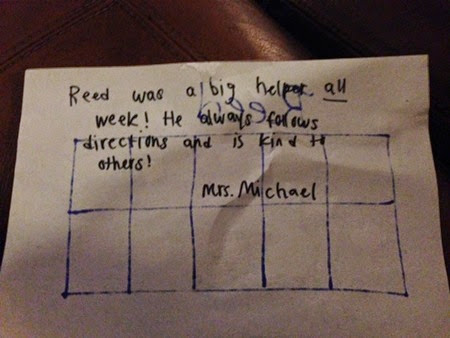 Reed was a big helper all
week! He always follows
directions and is kind to
others!
Mrs. Michael